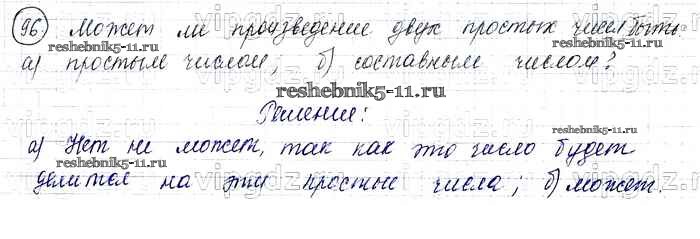 96. Может ли произведение двух простых чисел быть:
а) простым числом; б) составным числом?
Решение:
а) Нет не может, так как это число будет
делится на эти простые числа; б) может.
vipgdz.ru
reshebnik5-11.ru
reshebnik5-11.ru
reshebnik5-11.ru
reshebnik5-11.ru
reshebnik5-11.ru